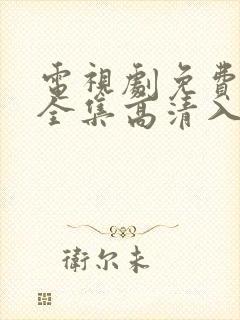 電視劇免費
全集高清入
衛尔未